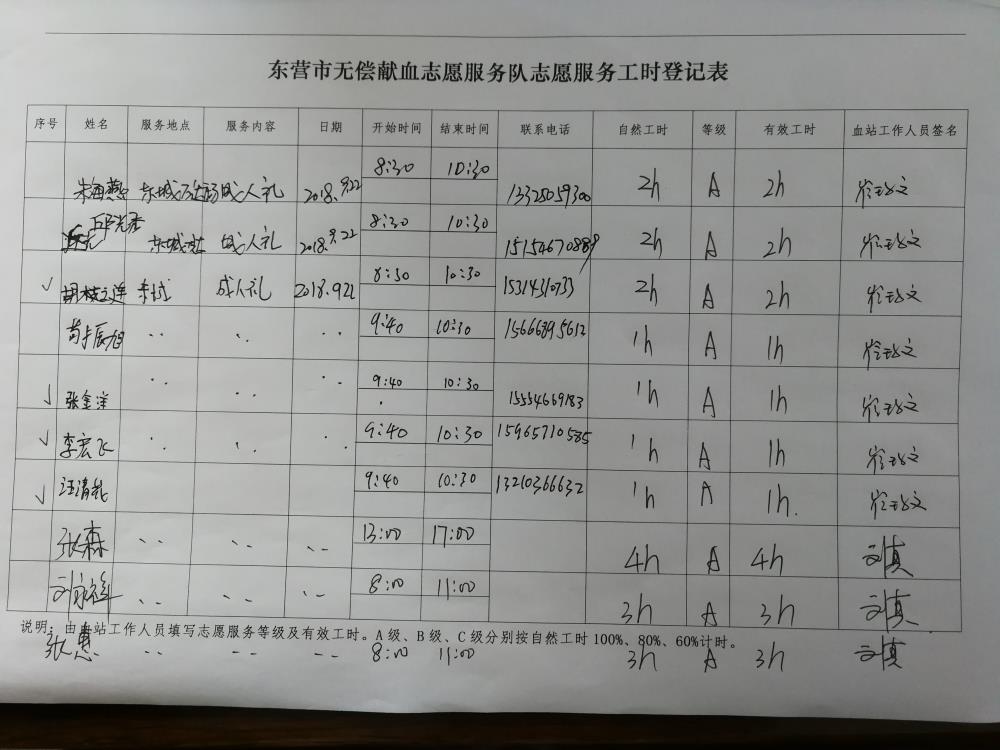 东营市无偿献血志愿服务队志愿服务工时登记表
序号 姓名 服务地点 服务内容 日期 开始时间 结束时间 联系电话 自然工时 等级 有效工时 血站工作人员签名
朱海燕 东城 成人礼 2018.9.22 8:30 10:30 13328059300 2h A 2h
邱光 东城 成人礼 2018.9.22 8:30 10:30 2h A 2h
√ 胡 东城 成人礼 2018.9.22 8:30 10:30 15314310733 2h A 2h
苟振旭 ·· ·· ·· 9:40 10:30 15666895612 1h A 1h
√ 张金洋 ·· ·· ·· 9:40 10:30 15554669183 1h A 1h
√ 李宏飞 ·· ·· · 9:40 10:30 15965710585 1h A 1h
√ 汪清 9:40 10:30 13210366632 1h A 1h.
张森 ·· ·· ·· 13:00 17:00 4h A 4h 刘真
刘 ·· ·· ·· 8:00 11:00 3h A 3h 刘真
说明：由血站工作人员填写志愿服务等级及有效工时。A级、B级、C级分别按自然工时100%、80%、60%计时。
张惠 ·· ·· ·· 8:00 11:00 3h A 3h 刘真